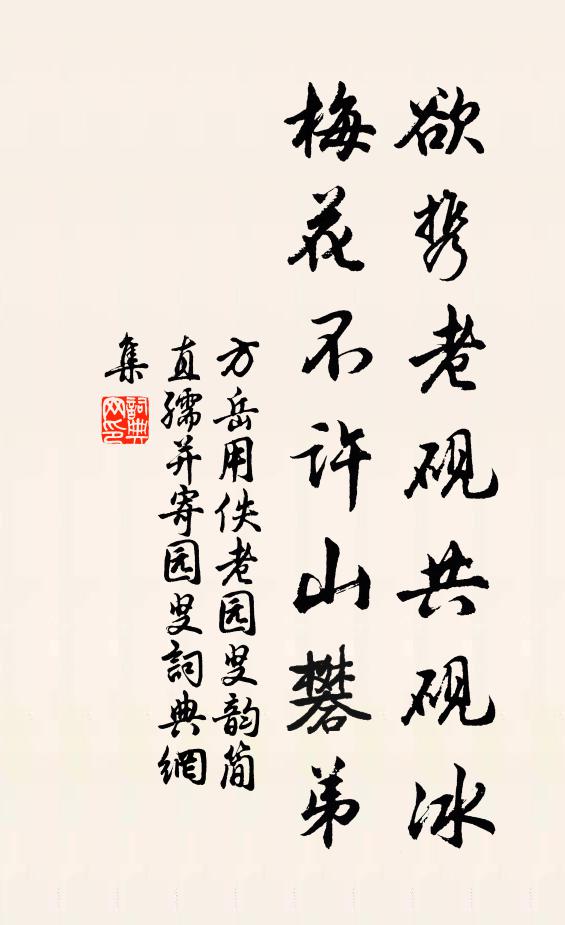 欲携老砚共砚冰
梅花不许山礬弟
方岳用佚老园叟韵简
直孺并寄园叟詞典網
集
詞典
网印